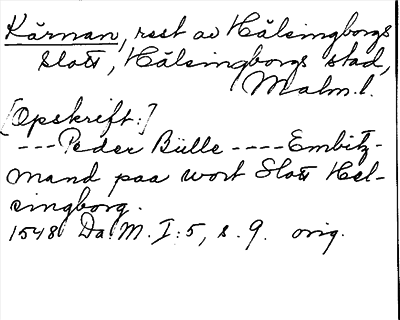 Kärnan, rest av Hälsingborgs
slott, Hälsingborgs stad,
Malm.l.
[Opskrift:]
---Peder Bülle ----Embitz-
mand paa wort Slott Hel-
singborg.
1548 Da.M. I:5, s.9. orig.